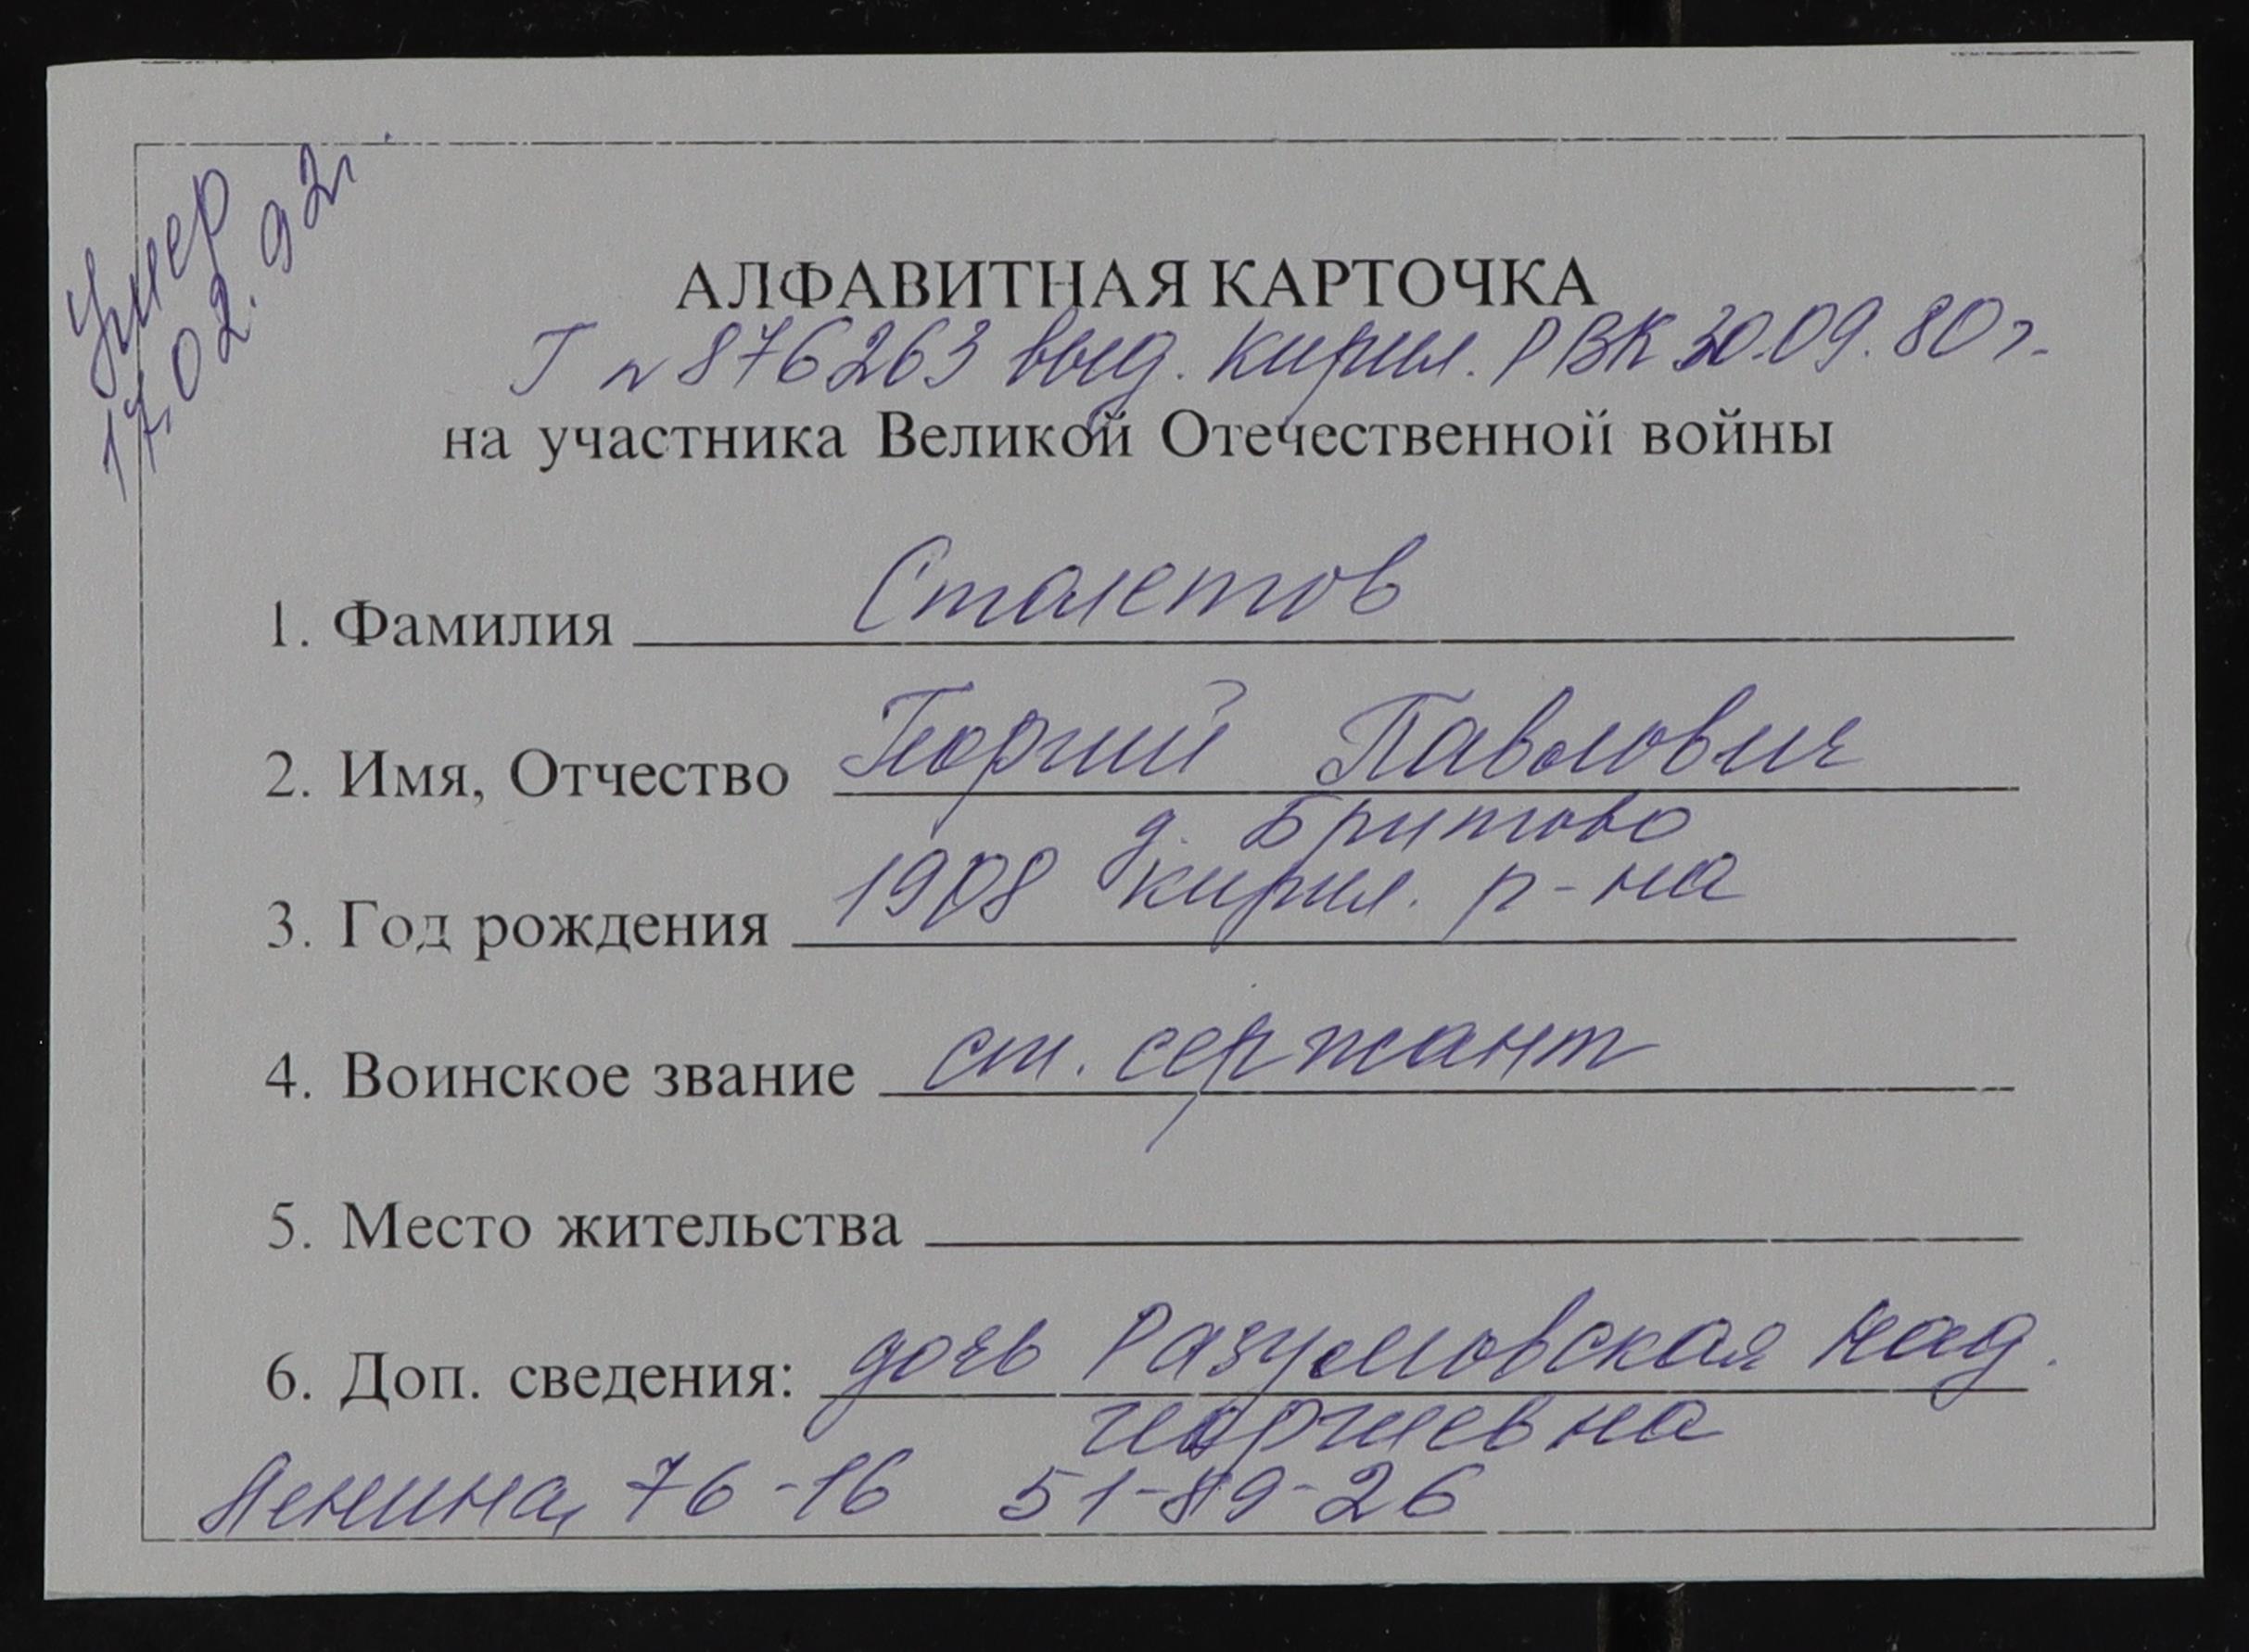 Умер
17.02.92г.
АЛФАВИТНАЯ КАРТОЧКА
Г № 876263 выд. Кирил. РВК 30.09.80г.
на участника Великой Отечественной войны
1. Фамилия Сталетов
2. Имя, Отчество Георгий Павлович
д. Бритово
3. Год рождения 1908 Кирил. р-на
4. Воинское звание ст. сержант
5. Место жительства
6. Доп. сведения: дочь Разумовская Над.
Георгиевна
Ленина, 76-16 51-89-26